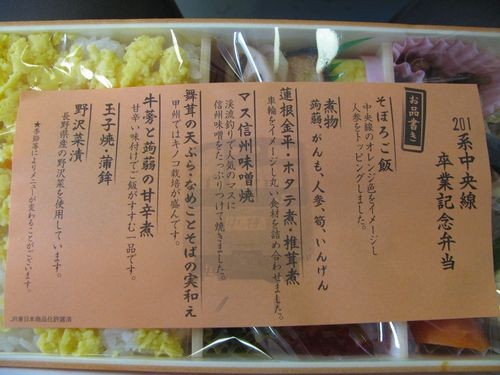 201系中央線
卒業記念弁当
お品書き
そぼろご飯
中央線のオレンジ色をイメージし
人参をトッピングしました。
煮物
蒟蒻、がんも、人参、筍、いんげん
蓮根金平・ホタテ煮・椎茸煮
車輪をイメージし丸い食材を詰め合わせました。
マス信州味噌焼
渓流釣りで人気のマスに
信州味噌をたっぷりつけて焼きました。
舞茸の天ぷら・なめことそばの実和え
甲州ではキノコ栽培が盛んです。
牛蒡と蒟蒻の甘辛煮
甘辛い味付けでご飯がすすむ一品です。
玉子焼・蒲鉾
野沢菜漬
長野県産の野沢菜を使用しています。
◆季節等によりメニューが変わることがございます。
JR東日本商品化許諾済